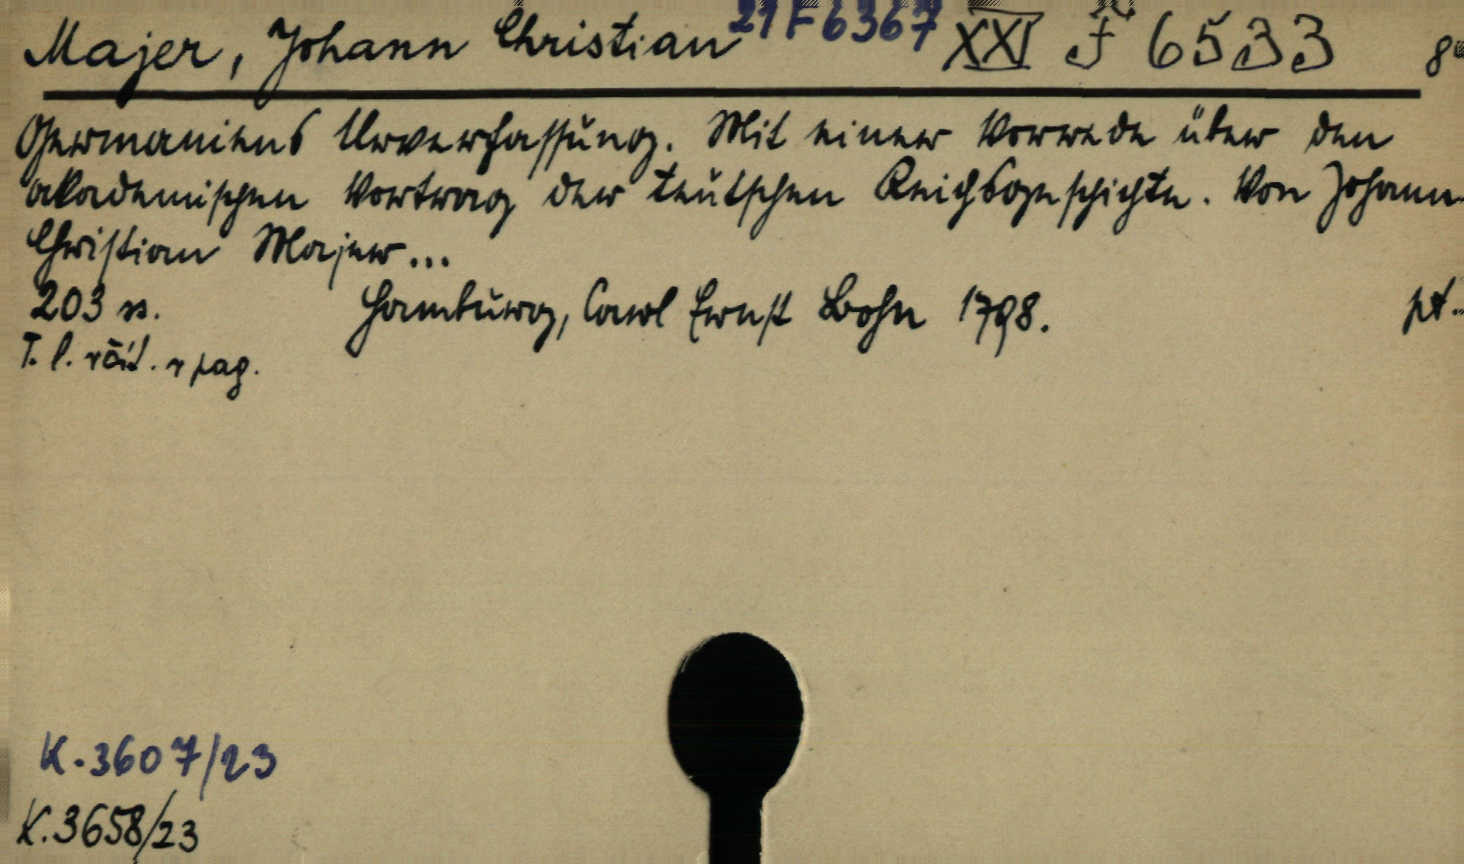 Majer, Johann Christian 21 F 6367 XXI F 6533 8°
Germaniens Urverfassung. Mit einer Vorrede über den
akademischen Vortrag der teutschen Reichsgeschichte. Von Johann
Christian Majer...
203 s. Hamburg, Carl Ernst Bohn 1798. pt.
T. l. väit. v pag.
K.3607/23
K.3658/23